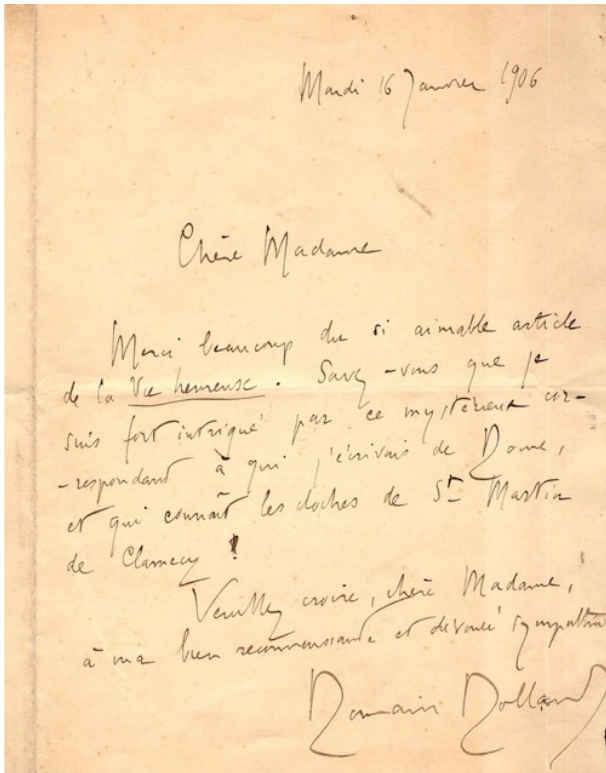 Mardi 16 Janvier 1906
Chère Madame
Merci beaucoup du si aimable article
de la Vie heureuse. Savez-vous que je
suis fort intrigué par ce mystérieux cor-
-respondant à qui j'écrivais de Rome,
et qui connaît les cloches de St Martin
de Clamecy !
Veuillez croire, chère Madame,
à ma bien reconnaissante et dévouée sympathie
Romain Rolland